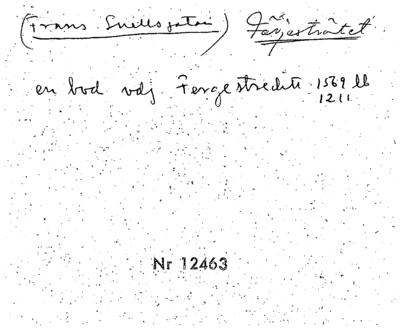 (Frans Snellsgatai) Färjestrâtet
en bod vdj Fergestredit 1569 lb
1211
Nr 12463